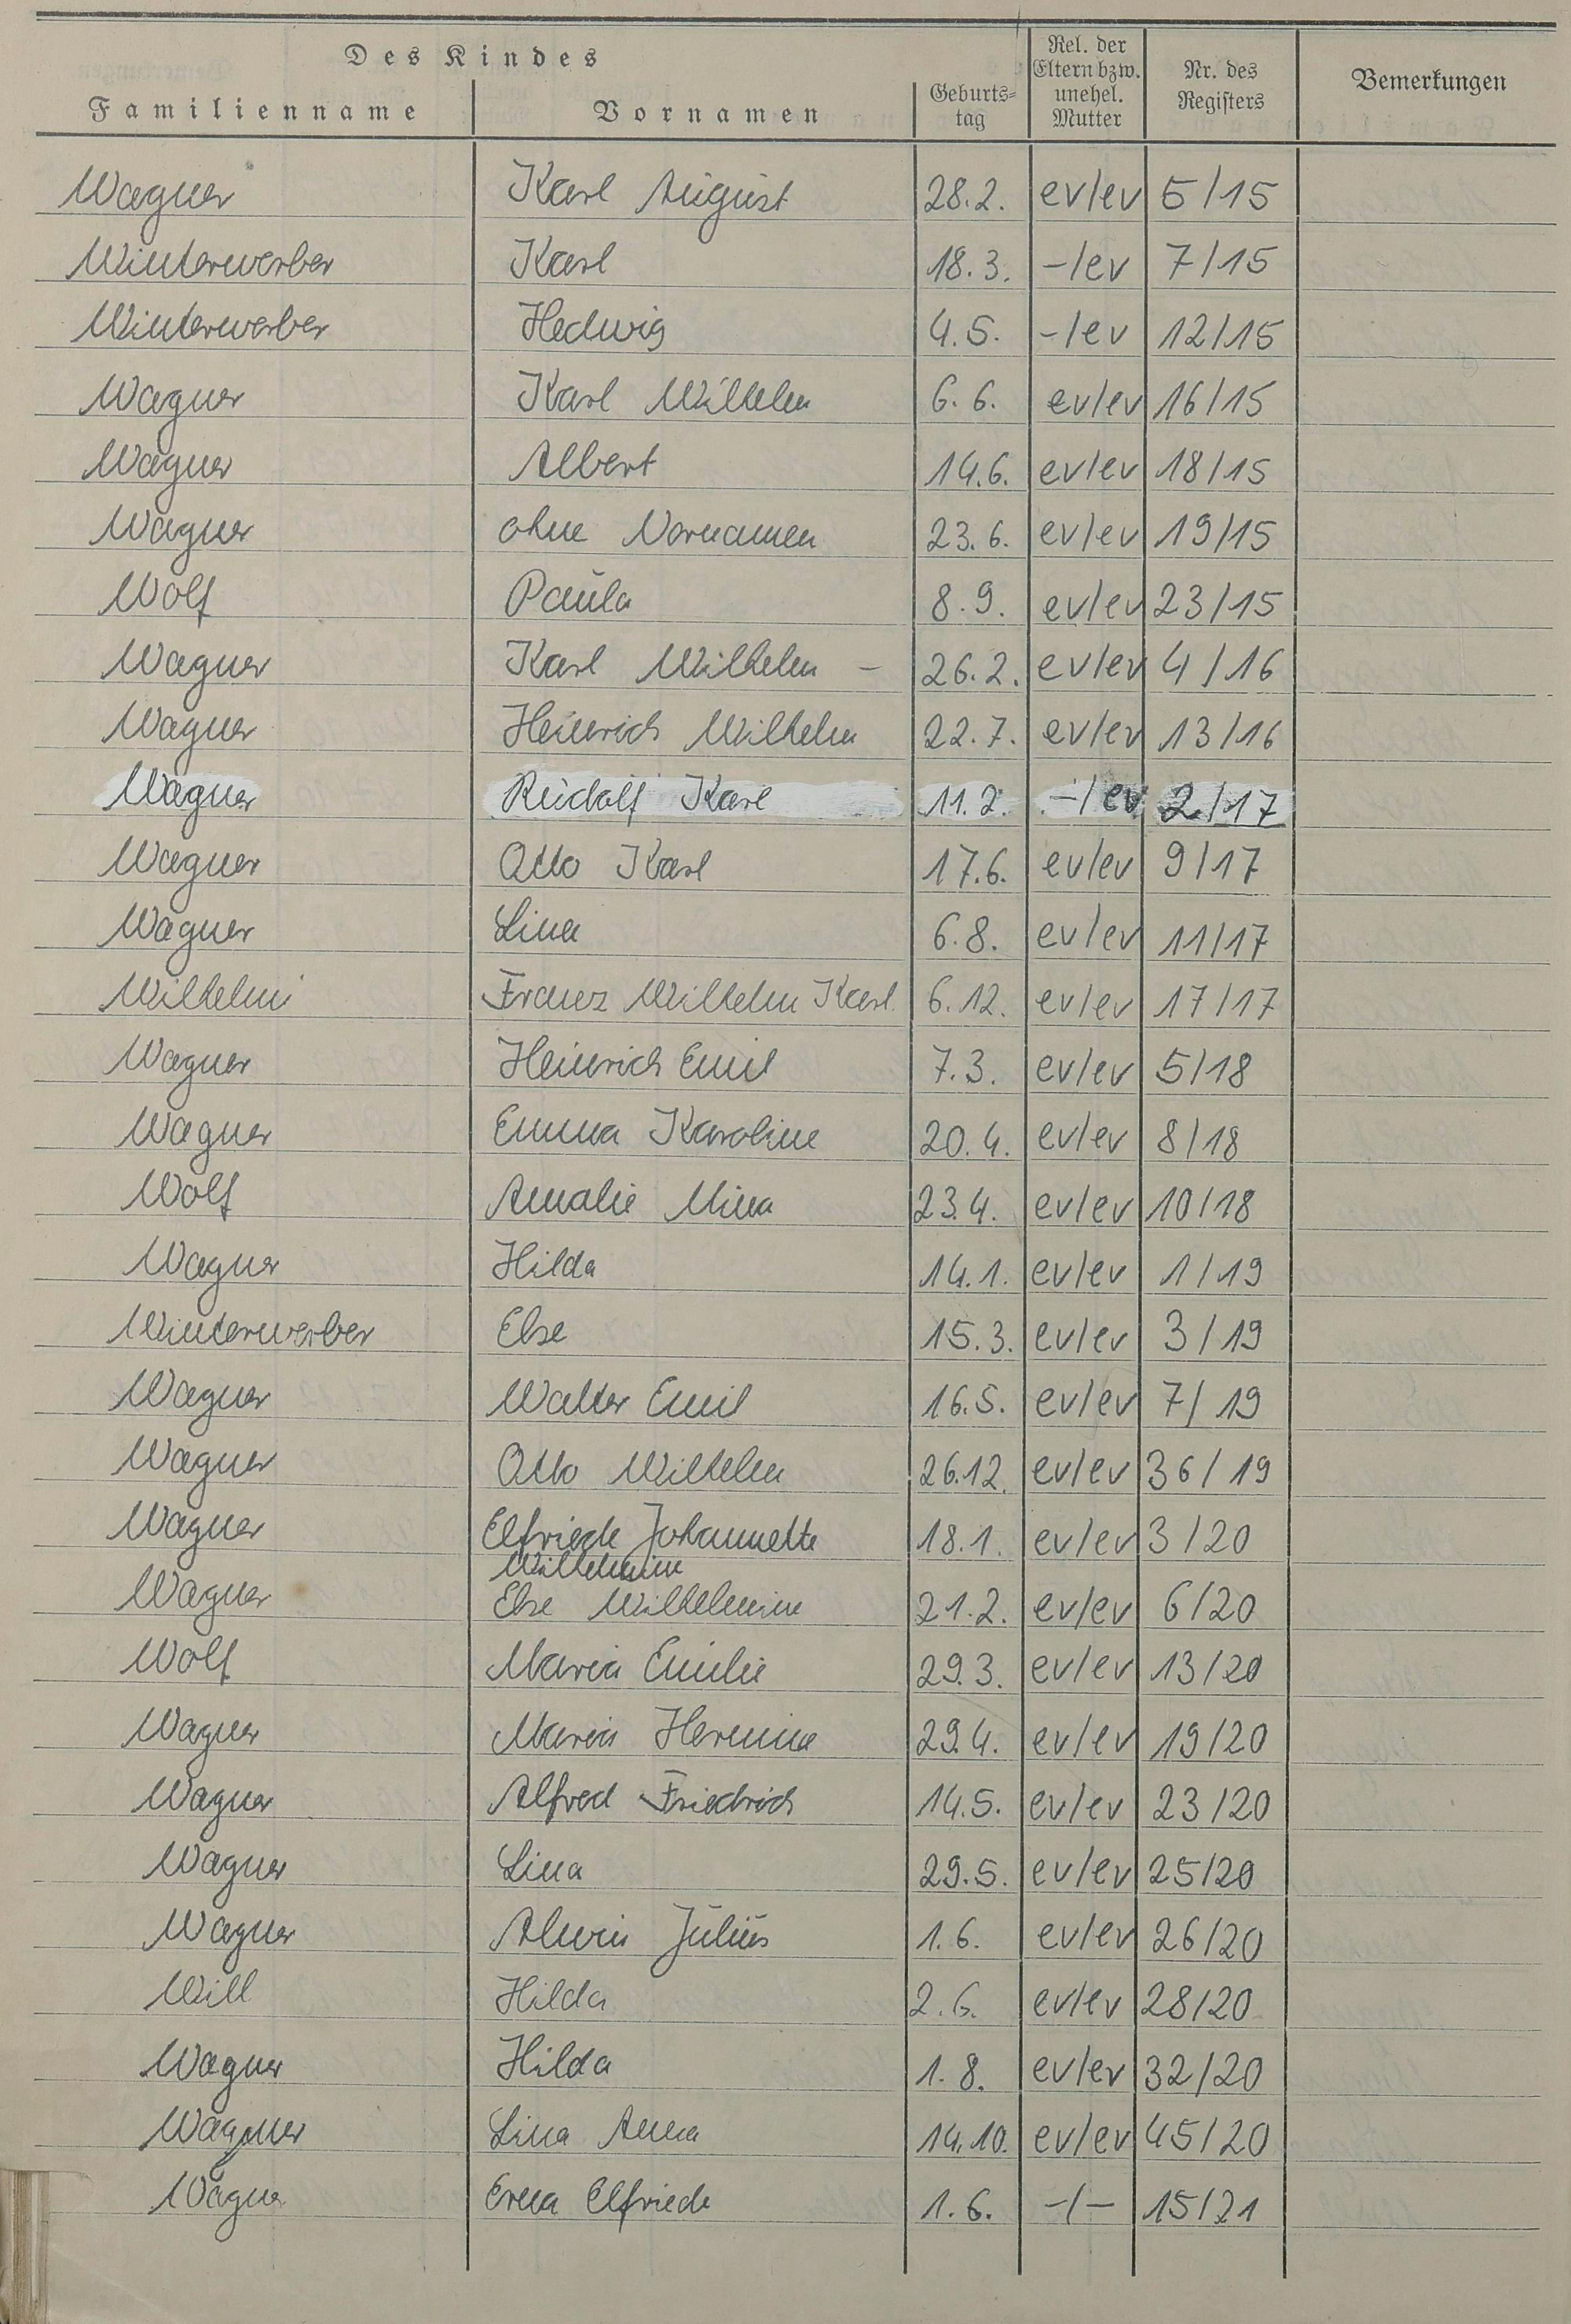 Des Kindes
Familienname Vornamen Geburts=tag Rel. der Eltern bzw. unehel. Mutter Nr. des Registers Bemerkungen
Wagner Karl August 28.2. ev/ev 5/15
Winterwerber Karl 18.3. -/ev 7/15
Winterwerber Hedwig 4.5. -/ev 12/15
Wagner Karl Wilhelm 6.6. ev/ev 16/15
Wagner Albert 14.6. ev/ev 18/15
Wagner ohne Vornamen 23.6. ev/ev 19/15
Wolf Paula 8.9. ev/ev 23/15
Wagner Karl Wilhelm - 26.2. ev/ev 4/16
Wagner Heinrich Wilhelm 22.7. ev/ev 13/16
Wagner Rudolf Karl 11.2. -/ev 2/17
Wagner Otto Karl 17.6. ev/ev 9/17
Wagner Lina 6.8. ev/ev 11/17
Wilhelmi Franz Wilhelm Karl 6.12. ev/ev 17/17
Wagner Heinrich Emil 7.3. ev/ev 5/18
Wagner Emma Karoline 20.4. ev/ev 8/18
Wolf Amalie Mina 23.4. ev/ev 10/18
Wagner Hilda 14.1. ev/ev 1/19
Winterwerber Else 15.3. ev/ev 3/19
Wagner Walter Emil 16.5. ev/ev 7/19
Wagner Otto Wilhelm 26.12. ev/ev 36/19
Wagner Elfriede Johannette 18.1. ev/ev 3/20
Wilhelmine
Wagner Else Wilhelmine 21.2. ev/ev 6/20
Wolf Maria Emilie 29.3. ev/ev 13/20
Wagner Maria Hermine 29.4. ev/ev 19/20
Wagner Alfred Friedrich 14.5. ev/ev 23/20
Wagner Lina 29.5. ev/ev 25/20
Wagner Alwin Julius 1.6. ev/ev 26/20
Will Hilda 2.6. ev/ev 28/20
Wagner Hilda 1.8. ev/ev 32/20
Wagner Lina Anna 14.10. ev/ev 45/20
Wagner Erna Elfriede 1.6. -/- 15/21